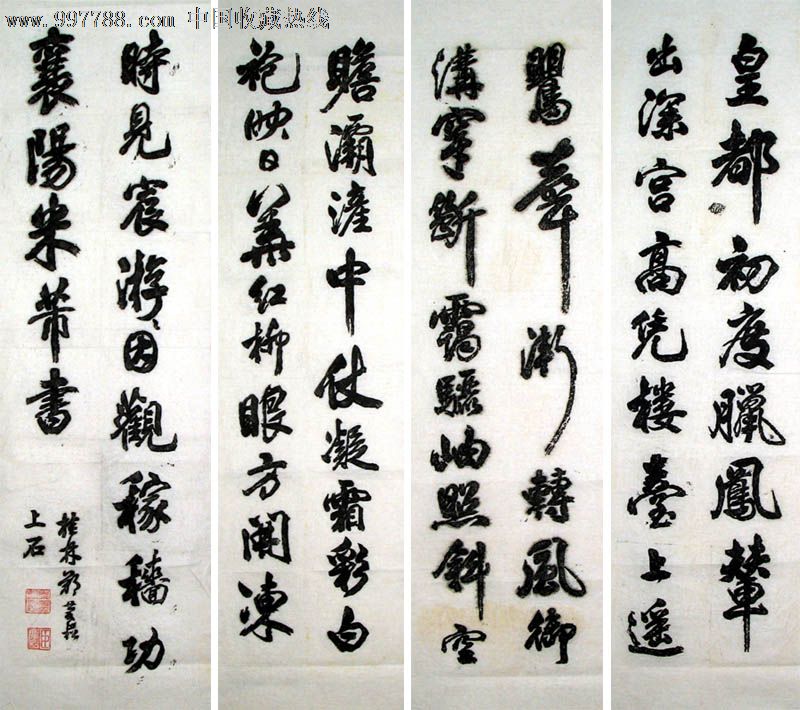 www.997788.com 中国收藏热线
皇都初度臘鳳輦
出深宮高凭樓臺上遙
鸎聲漸轉風御
溝穿斷靄驪岫照斜空
瞻灞滻中仗凝霜彩白
袍映日華紅柳眼方開凍
時見宸游因觀稼穡功
襄陽米芾書
桂林
上石